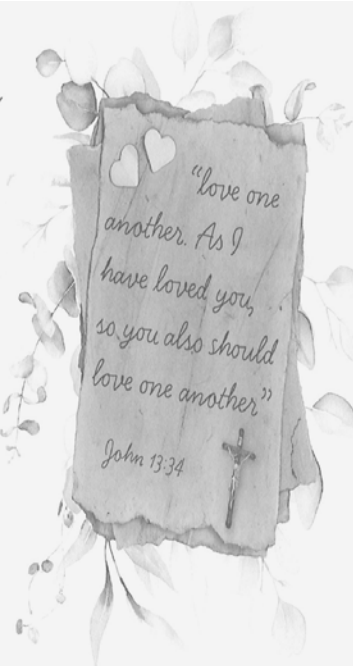 “love one
another. As I
have loved you,
so you also should
love one another”
John 13:34